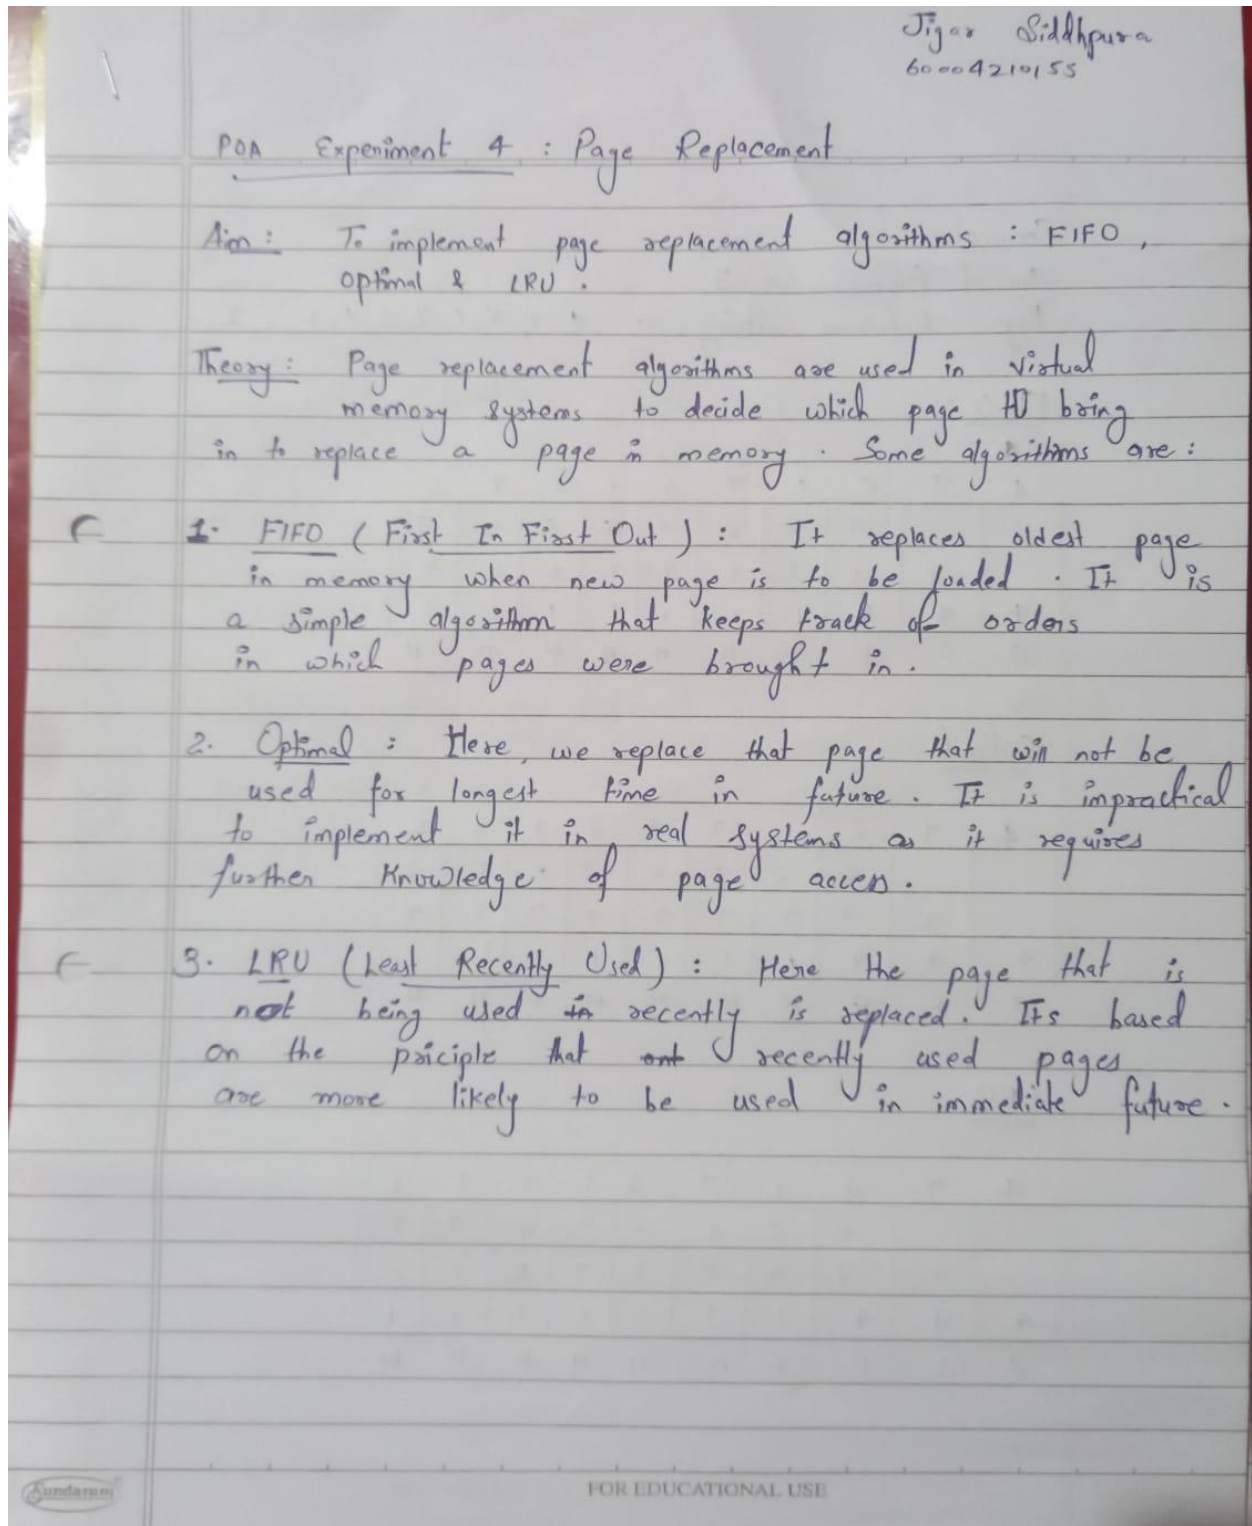 Jigar Siddhpura
60004210155
POA Experiment 4 : Page Replacement
Aim : To implement page replacement algorithms : FIFO ,
optimal & LRU .
Theory : Page replacement algorithms are used in virtual
memory systems to decide which page to bring
in to replace a page in memory . Some algorithms are :
1. FIFO ( First In First Out ) : It replaces oldest page
in memory when new page is to be loaded . It is
a simple algorithm that keeps track of orders
in which pages were brought in .
2. Optimal : Here, we replace that page that will not be
used for longest time in future . It is impractical
to implement it in real systems as it requires
further knowledge of page access .
3. LRU ( Least Recently Used ) : Here the page that is
not being used in recently is replaced . Its based
on the priciple that recently used pages
are more likely to be used in immediate future .
Sundaram
FOR EDUCATIONAL USE